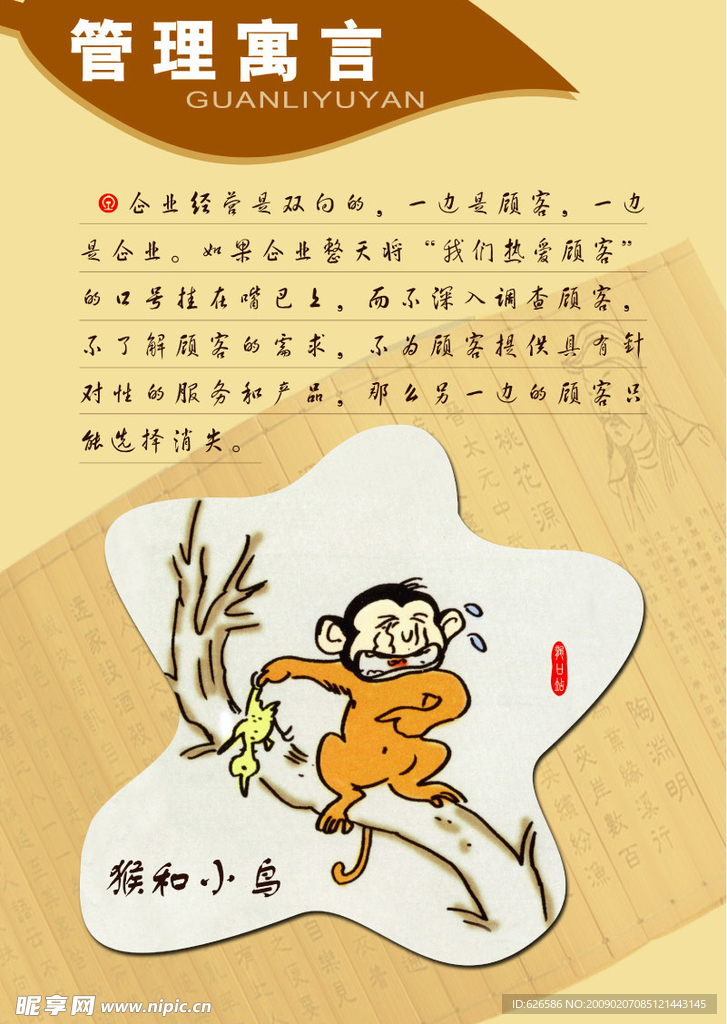 管理寓言
GUANLIYUYAN
企业经营是双向的，一边是顾客，一边
是企业。如果企业整天将“我们热爱顾客”
的口号挂在嘴巴上，而不深入调查顾客，
不了解顾客的需求，不为顾客提供具有针
对性的服务和产品，那么另一边的顾客只
能选择消失。
猴和小鸟
桃花源
太元中武
陶渊明
夹岸數百
缤纷漁
昵享网 www.nipic.cn
ID:626586 NO:20090207085121443145